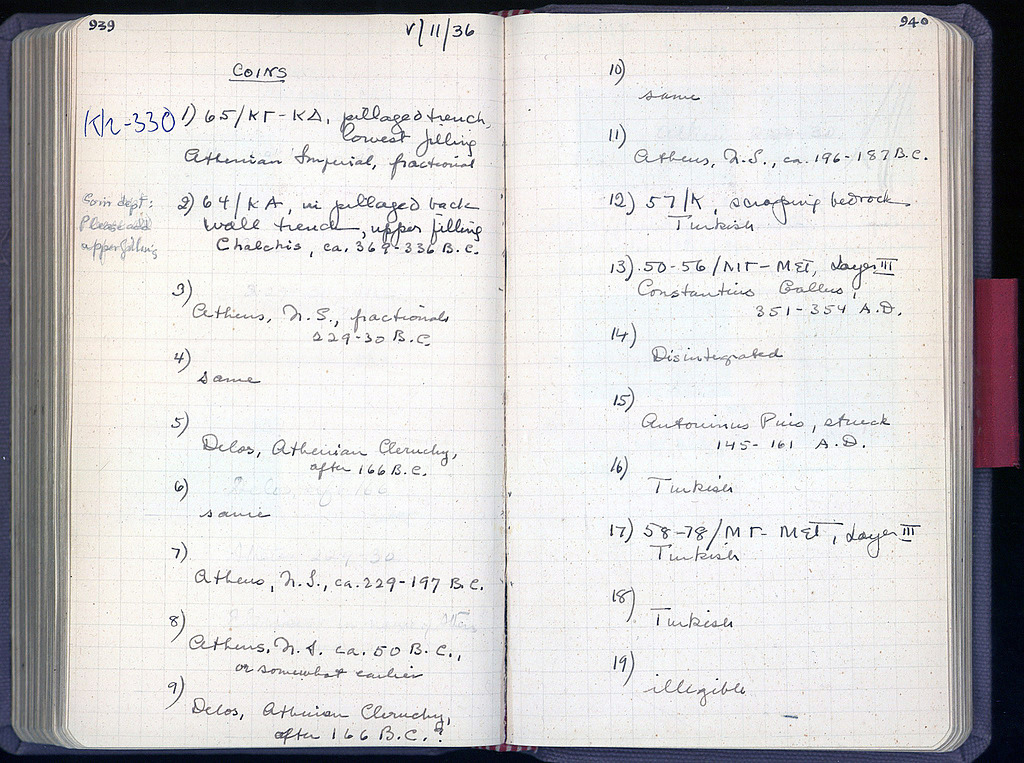 939
V/11/36
COINS
KK-330 1) 65/ΚΓ-ΚΔ, pillaged trench,
lowest filling
Athenian Imperial, fractional
Coin dept:
Please add
upper filling
2) 64/ΚΔ, in pillaged back
wall trench, upper filling
Chalchis, ca. 369-336 B.C.
3)
Athens, N.S., fractionals
229-30 B.C.
4)
same
5)
Delos, Athenian Cleruchy,
after 166 B.C.
6)
same
7)
Athens, N.S., ca. 229-197 B.C.
8)
Athens, N.S. ca. 50 B.C.,
or somewhat earlier
9)
Delos, Athenian Cleruchy,
after 166 B.C.?
940
10)
same
11)
Athens, N.S., ca. 196-187 B.C.
12) 57/Κ, scrapping bedrock
Turkish
13) 50-56/ΜΓ-ΜΣΤ, Layer III
Constantius Gallus,
351-354 A.D.
14)
Disintegrated
15)
Antoninus Pius, struck
145-161 A.D.
16)
Turkish
17) 58-78/ΜΓ-ΜΣΤ, Layer III
Turkish
18)
Turkish
19)
illegible